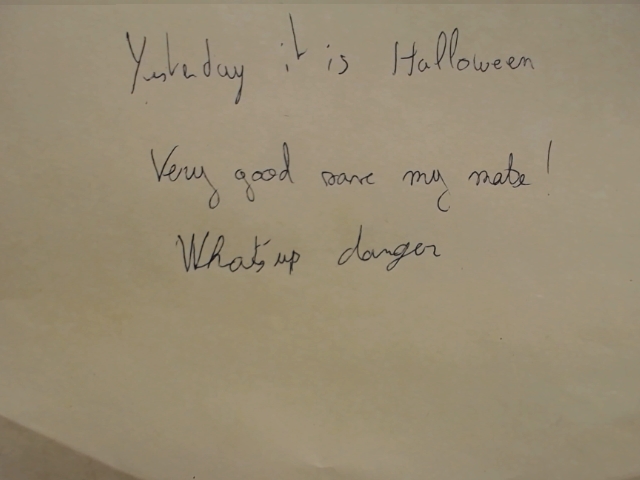 Yesterday it is Halloween
Very good save my mate!
What's up danger